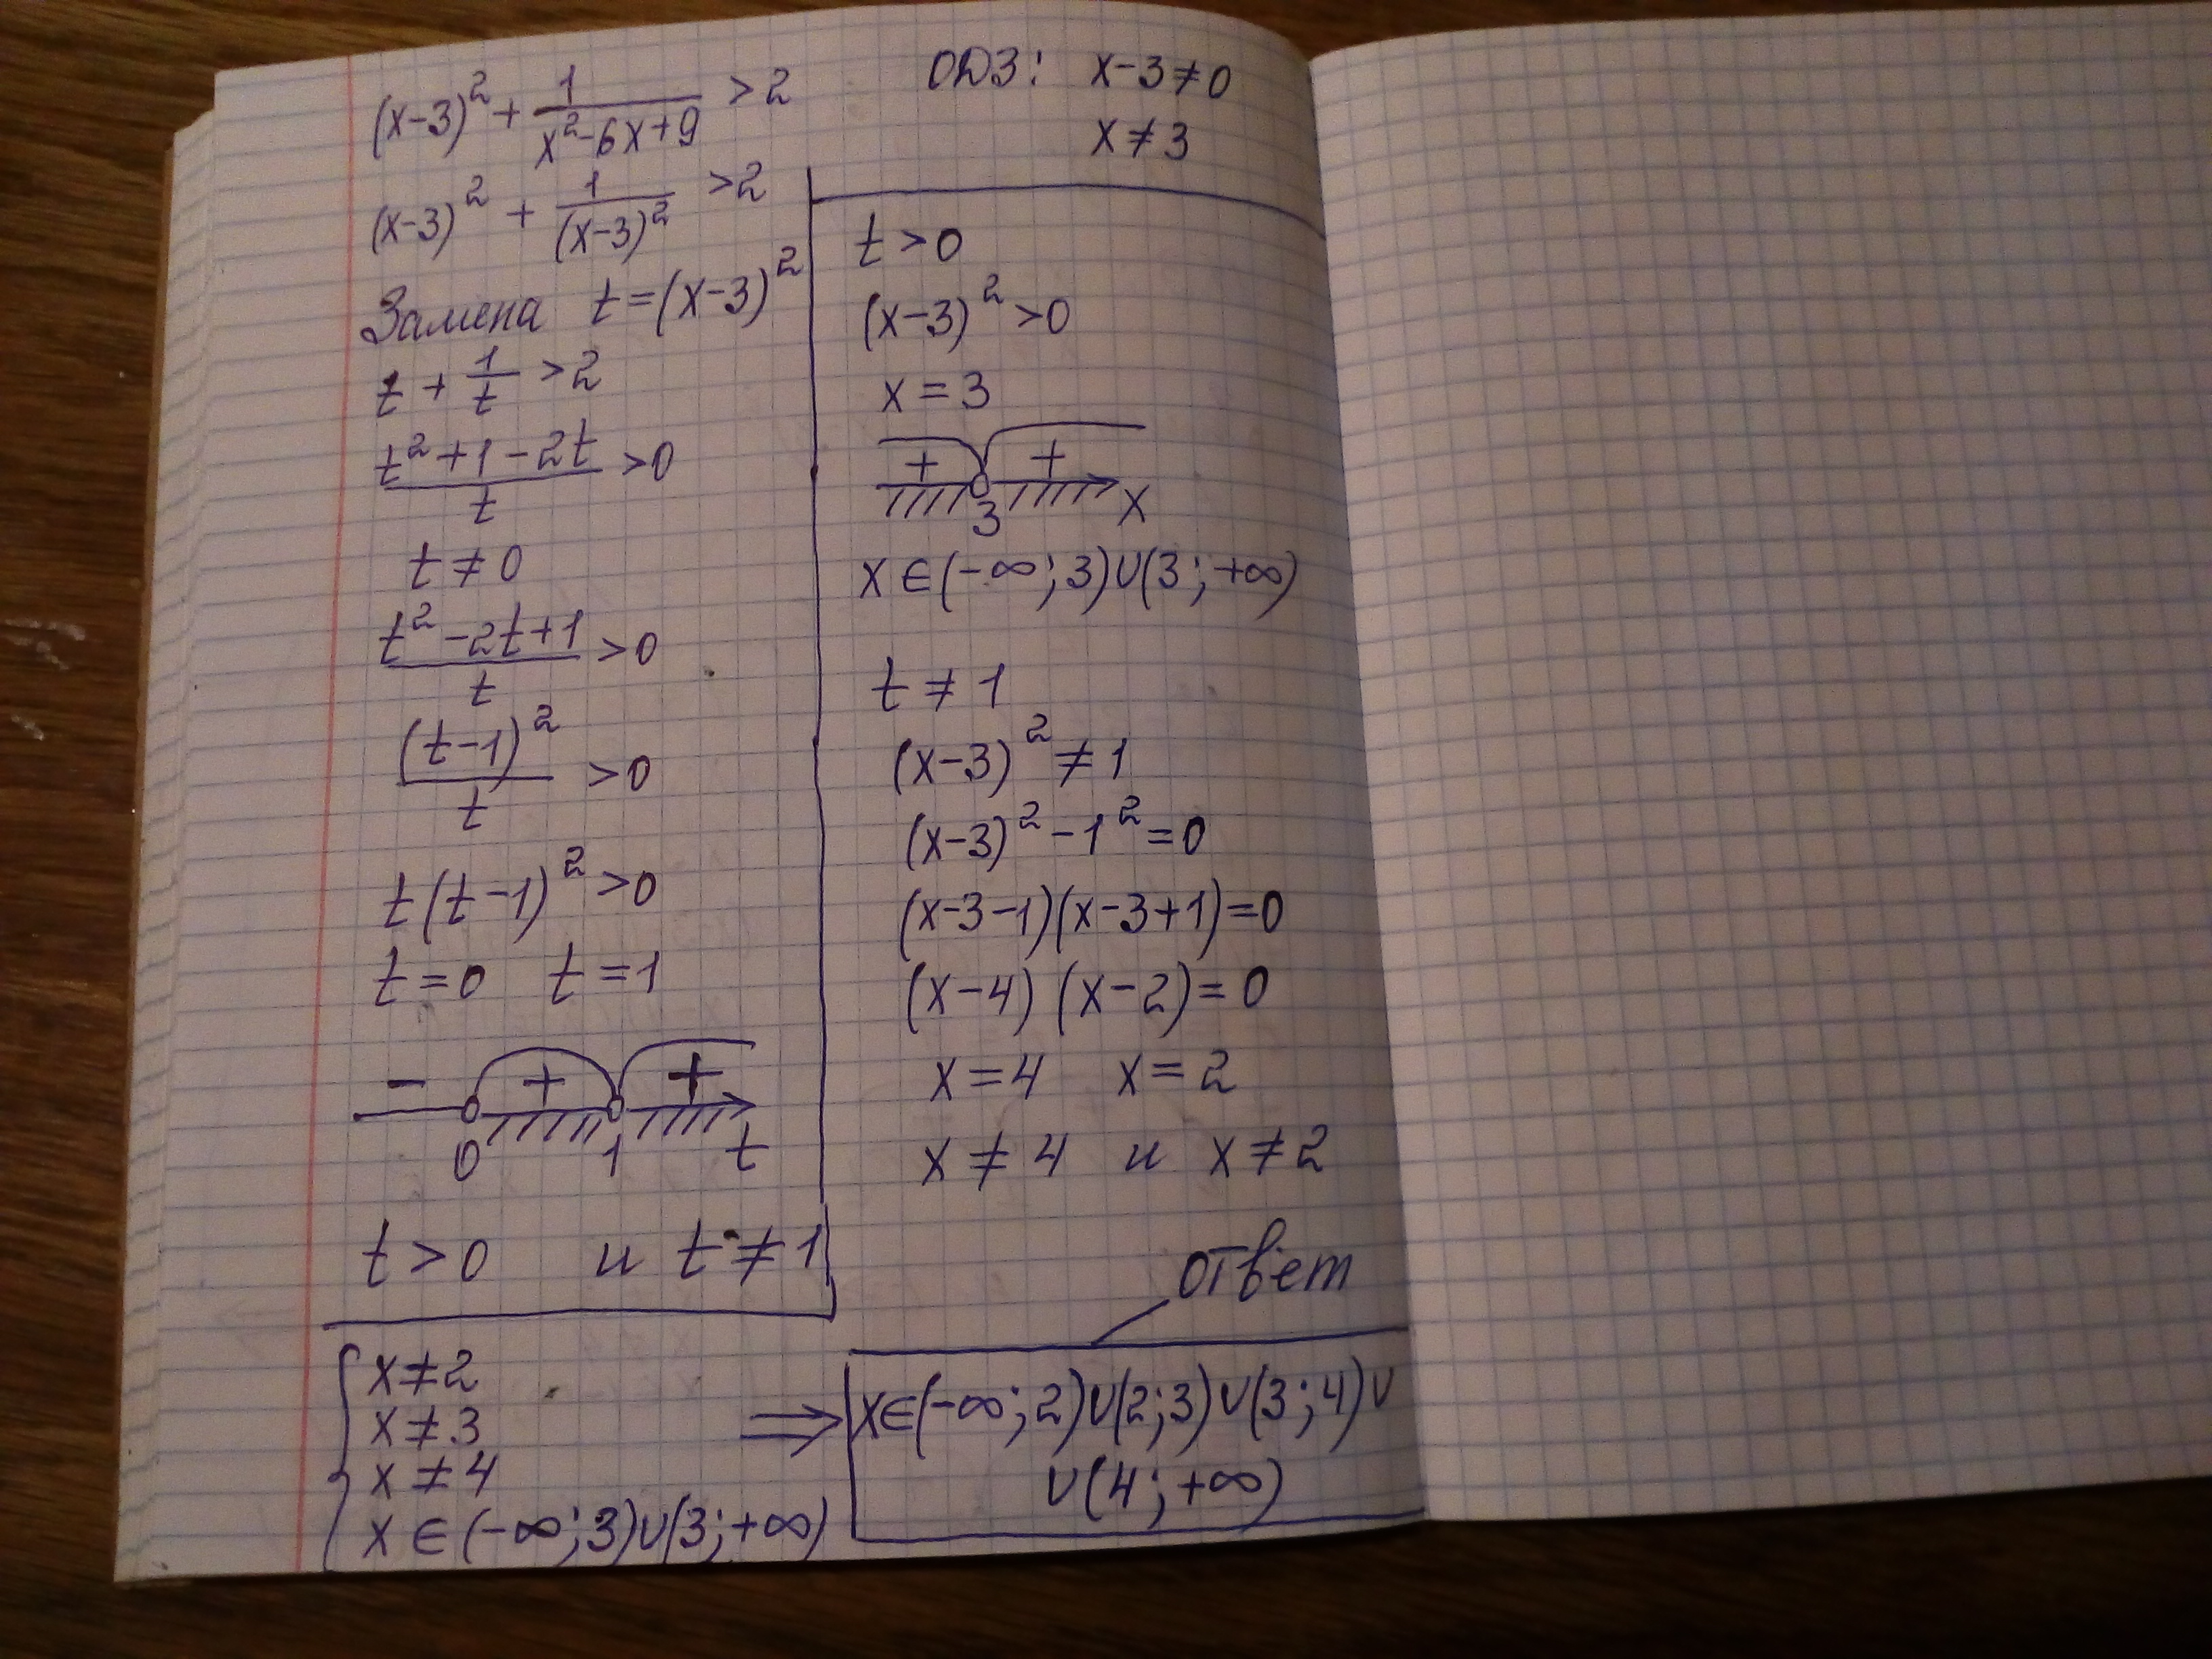 (x-3)² + 1/(x²-6x+9) >2
(x-3)² + 1/(x-3)² >2
Замена t=(x-3)²
t + 1/t >2
(t²+1-2t)/t >0
t≠0
(t²-2t+1)/t >0
(t-1)²/t >0
t(t-1)²>0
t=0 t=1
- + +
0 1 t
t>0 и t≠1
ОДЗ: x-3≠0
x≠3
t>0
(x-3)²>0
x=3
+ +
3 x
x∈(-∞;3)∪(3;+∞)
t≠1
(x-3)²≠1
(x-3)²-1²=0
(x-3-1)(x-3+1)=0
(x-4)(x-2)=0
x=4 x=2
x≠4 и x≠2
ответ
{ x≠2
x≠3
x≠4
x∈(-∞;3)∪(3;+∞)
⇒ x∈(-∞;2)∪(2;3)∪(3;4)∪
∪(4;+∞)